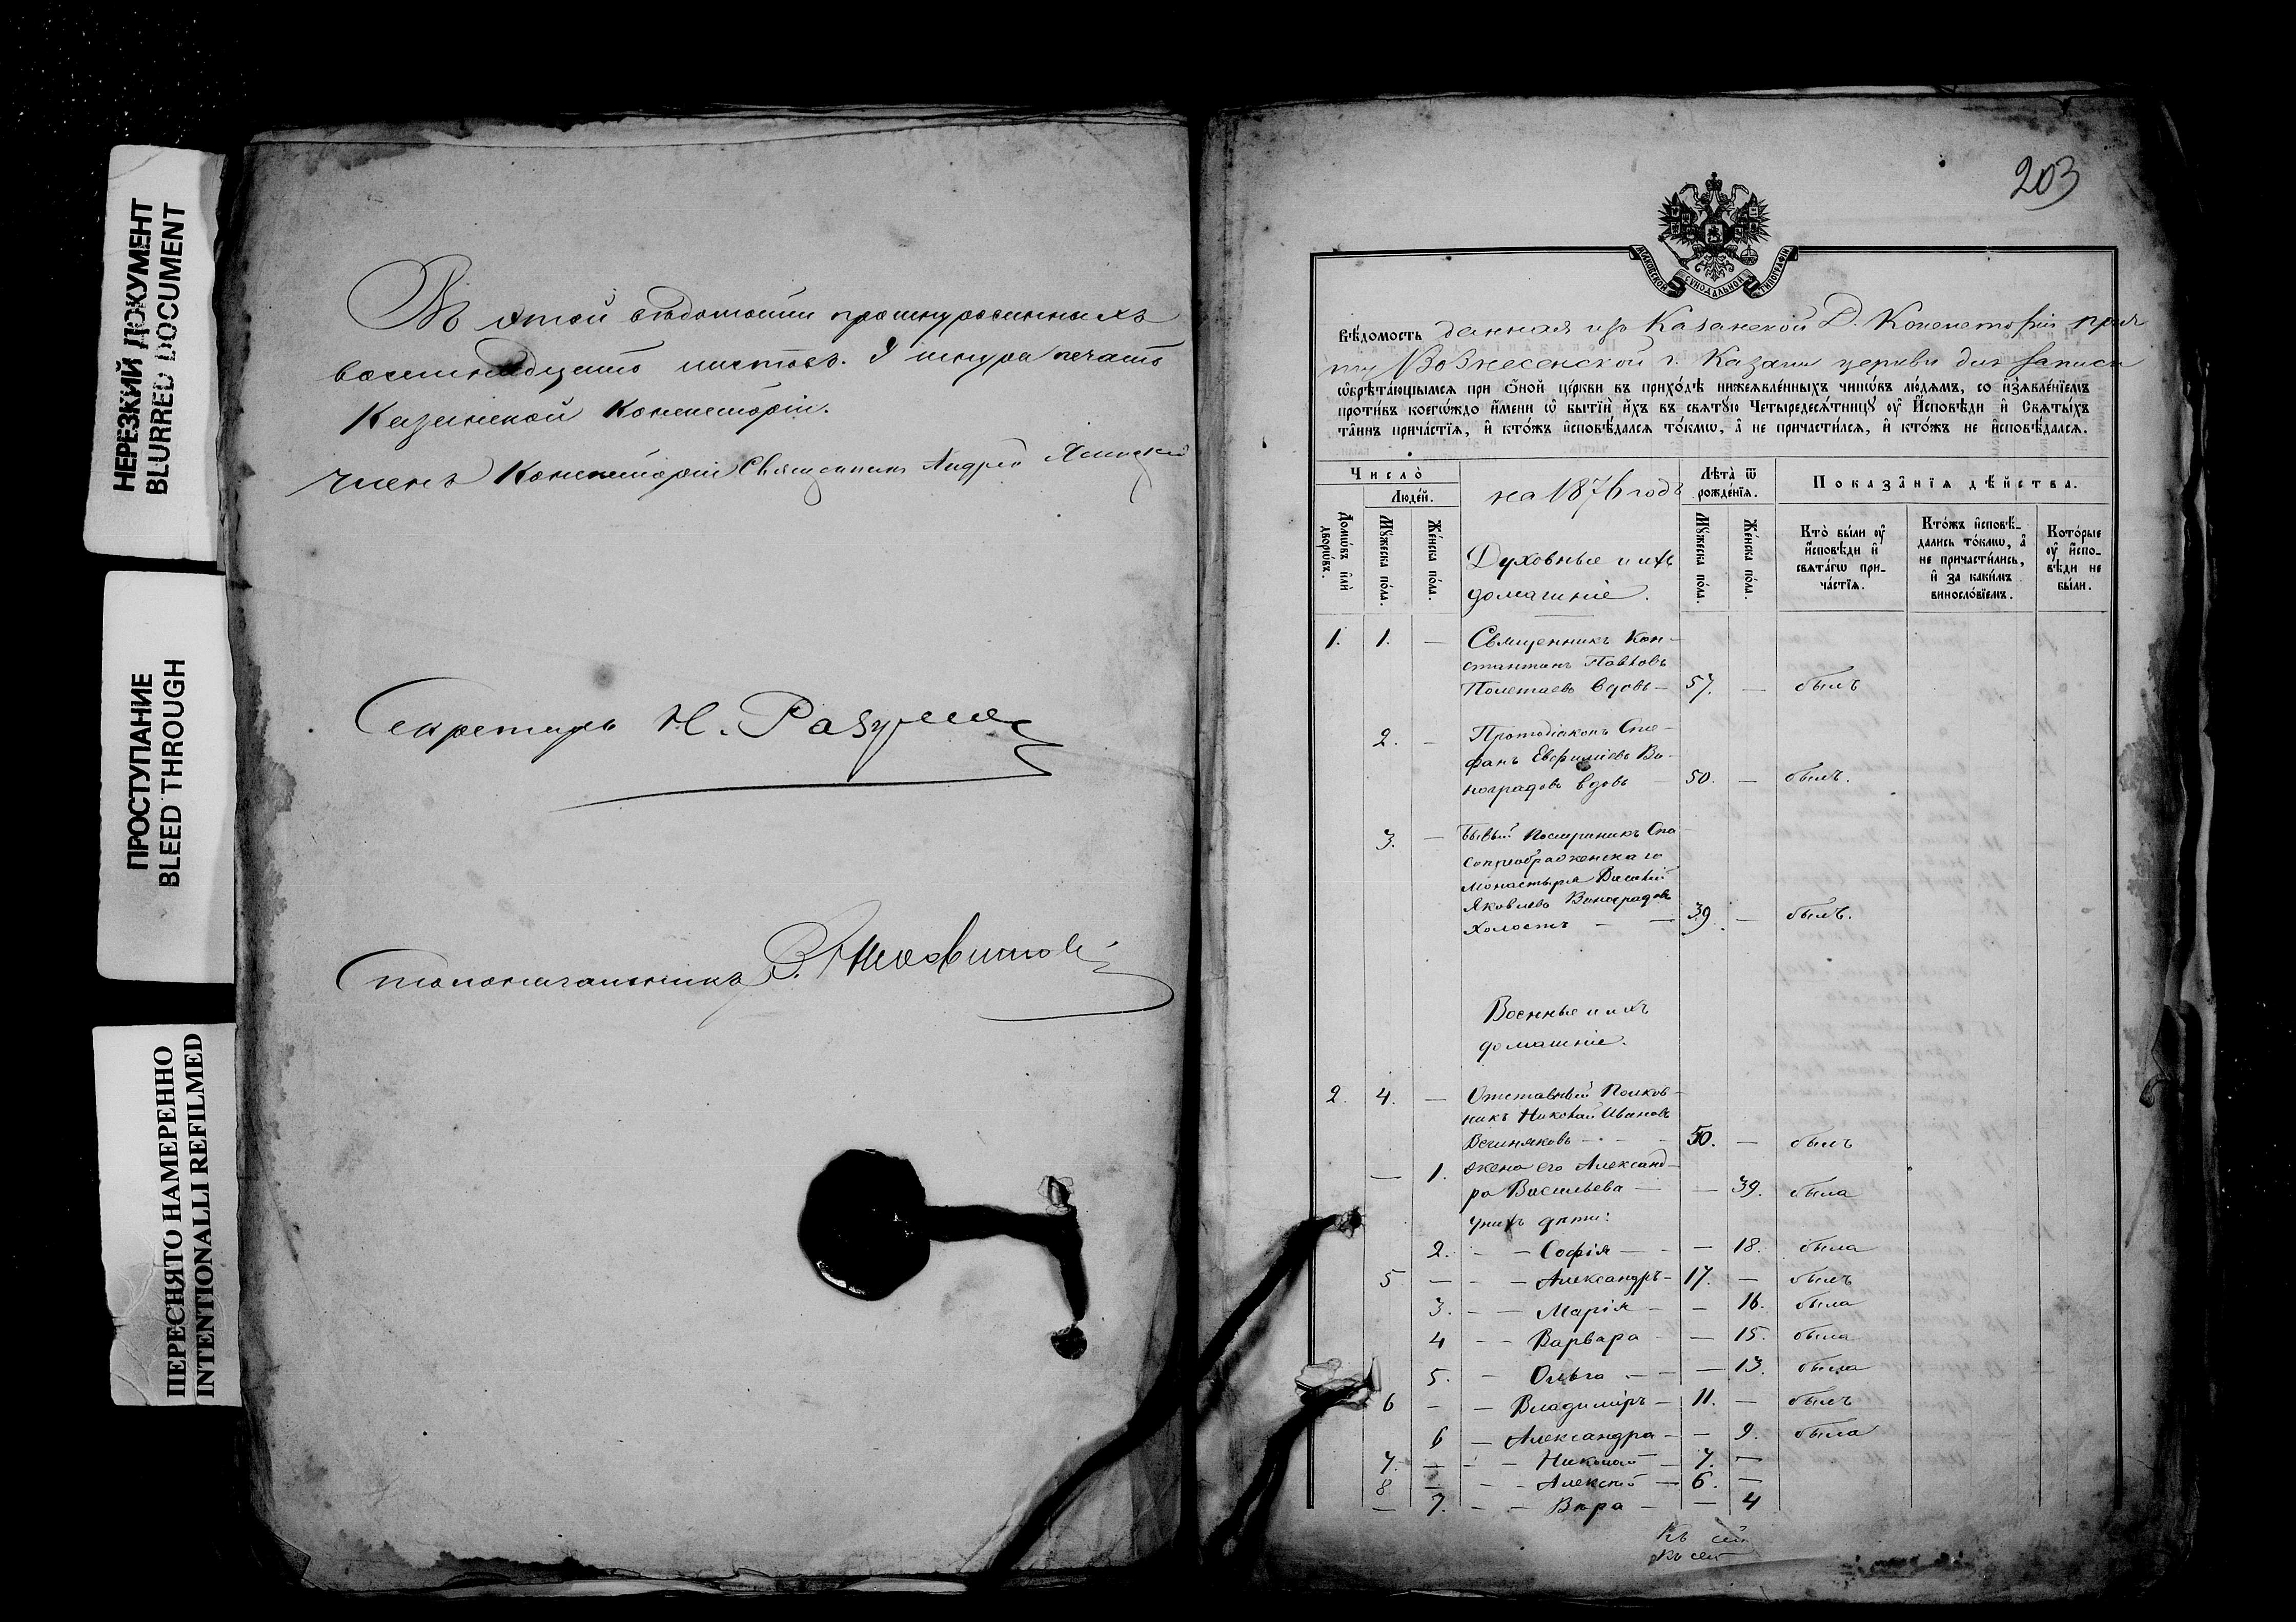 НЕРЕЗКИЙ ДОКУМЕНТ
BLURRED DOCUMENT
ПРОСТУПАНИЕ
BLEED THROUGH
ПЕРЕСНЯТО НАМЕРЕННО
INTENTIONALLI REFILMED
Въ этой ведомости прошнурованныхъ
восемнадцать листовъ. У шнура печать
Казанской Консисторіи.
Членъ Консисторіи Священникъ Андрей
Секретарь Н. Разумов
Столоначальникъ В.
203
МОСКОВСКОЙ СѴНОДАЛЬНОЙ ТИПОГРАФІИ
Вѣ́домость данная изъ Казанской Д. Консисторіи прич
ту Вознесенской г. Казани церкви для записи
ѡ҆брѣта́ющымсѧ при О҆́ной це́ркви въ прихо́дѣ нижеѧвле́нныхъ чинѡ́въ лю́демъ, со и҆з̾ѧвле́нїемъ
проти́въ коегѡ́ждо и҆́мени ѡ҆ бытїѝ и҆́хъ въ свѧтꙋ́ю Четыредесѧ́тницꙋ ᲂу҆ И҆́сповѣди и҆ Свѧты́хъ
та̑инъ прича́стїѧ, и҆ кто́жъ и҆сповѣ́далсѧ то́кмѡ, а҆ не причасти́лсѧ, и҆ кто́жъ не и҆сповѣ́далсѧ.
Число̀
Люде́й.
Домѡ́въ и҆лѝ дворѡ́въ.
Мꙋ́жеска по́ла.
Же́нска по́ла.
на 1876 годъ
Духовные и ихъ
домашніе.
Лѣта̀ ѿ рожде́нїѧ.
Мꙋ́жеска по́ла.
Же́нска по́ла.
Показа̑нїѧ дѣ́йства.
Кто̀ бы́ли ᲂу҆ и҆́сповѣди и҆ свѧта́гѡ прича́стїѧ.
Кто́жъ и҆сповѣ́дались то́кмѡ, а҆ не причасти́лись, и҆ за каки́мъ виносло́вїемъ.
Кото́рые ᲂу҆ и҆́сповѣди не бы́ли.
1. 1. — Священникъ Кон-
стантинъ Павловъ
Полетаевъ вдовъ — 57. — былъ
2. — Протодіаконъ Сте-
фанъ Евфиміевъ Ви-
ноградовъ вдовъ — 50. — былъ.
3. — Бывый послушникъ Спа
сопреображенскаго
Монастыря Василій
Яковлевъ Виноградовъ
Холостъ — — 39. — былъ.
Военные и ихъ
домашніе.
2. 4. — Отставный Полков-
никъ Николай Ивановъ
Вешняковъ — 50. — былъ
— 1. жена его Александ-
ра Васильева — — 39. была
у нихъ дѣти:
2. — — Софія — — 18. была
5 — — — Александръ — 17. — былъ
3. — — Марія — — 16. была
4 — — Варвара — — 15. была
5. — Ольга — — — 13. была
6 — — Владиміръ — 11. — былъ
6 — Александра — — 9. была
7. — — — Николай — 7. —
8 — — — Алексѣй — 6. —
— 7. — — Вѣра — — 4